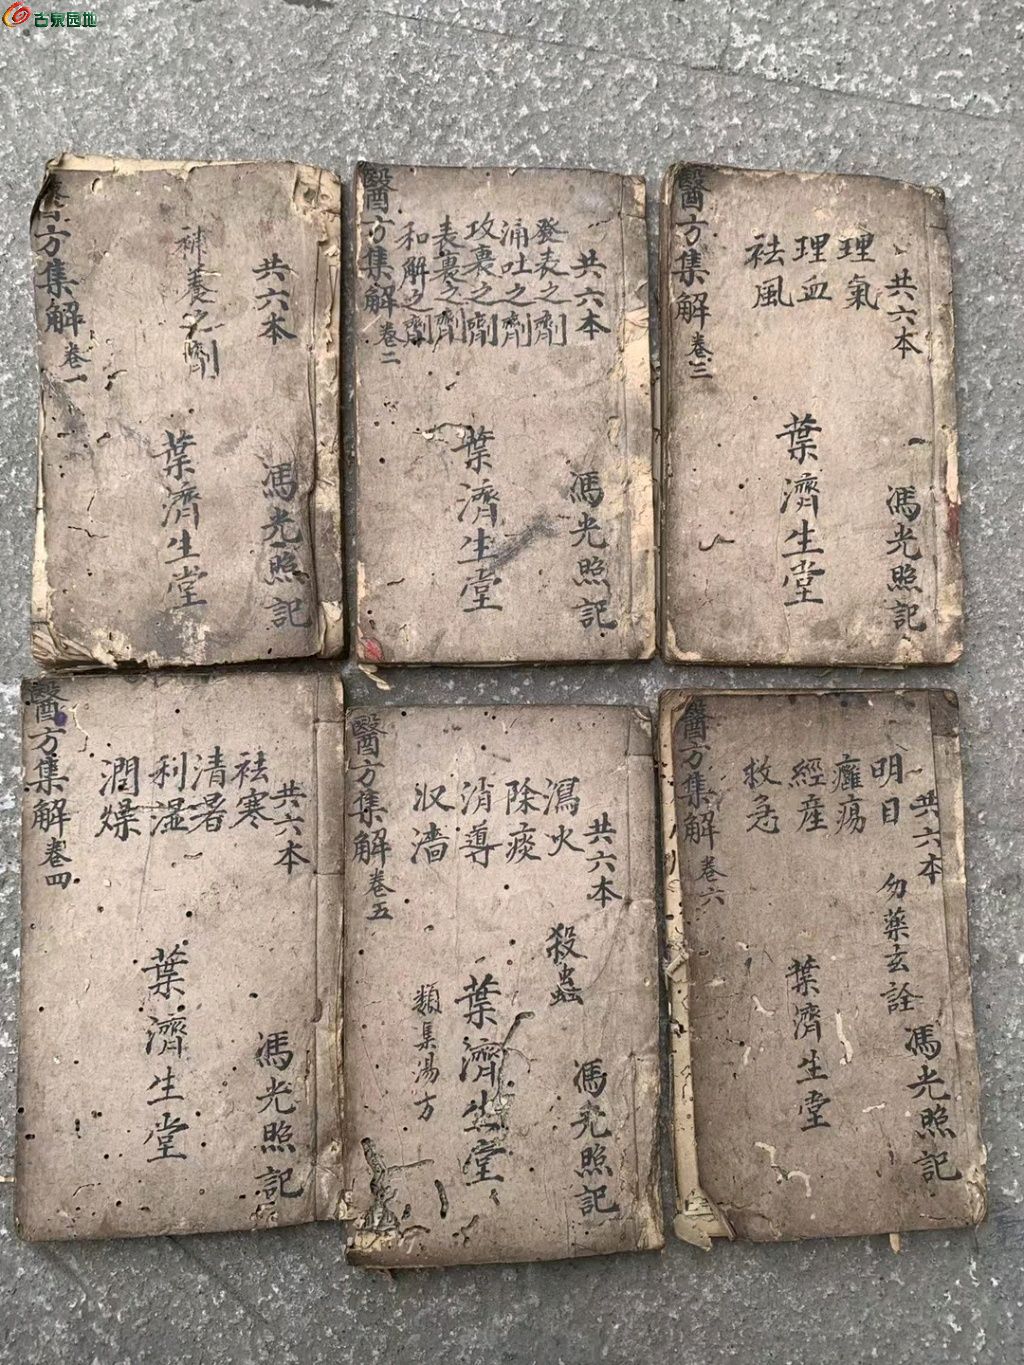 古泉园地
共六本
補養之劑
醫方集解 卷一
葉濟生堂
馮光照記
共六本
發表之劑
涌吐之劑
攻裏之劑
表裏之劑
和解之劑
醫方集解 卷二
葉濟生堂
馮光照記
共六本
理氣
理血
祛風
醫方集解 卷三
葉濟生堂
馮光照記
共六本
祛寒
清暑
利湿
潤燥
醫方集解 卷四
葉濟生堂
馮光照記
共六本
瀉火
除痰
消導
収濇
殺蟲
類集湯方
醫方集解 卷五
葉濟生堂
馮光照記
共六本
明目
癰瘍
經產
救急
勿藥玄詮
醫方集解 卷六
葉濟生堂
馮光照記